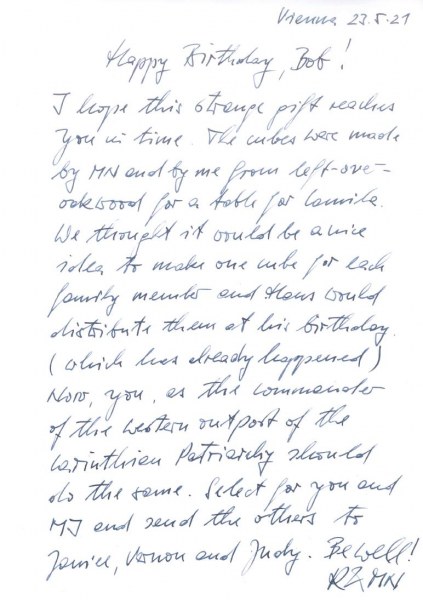 Vienna 23.5.21
Happy Birthday, Bob!
I hope this strange gift reaches
you in time. The cubes were made
by MN and by me from left-over-
oakwood for a table for Camila.
We thought it would be a nice
idea to make one cube for each
family member and Hans would
distribute them at his birthday.
(which has already happened)
Now, you, as the commander
of the western outpost of the
Carinthian Patriarchy should
do the same. Select for you and
MJ and send the others to
Janice, Vernon and Judy. Be well!
MN